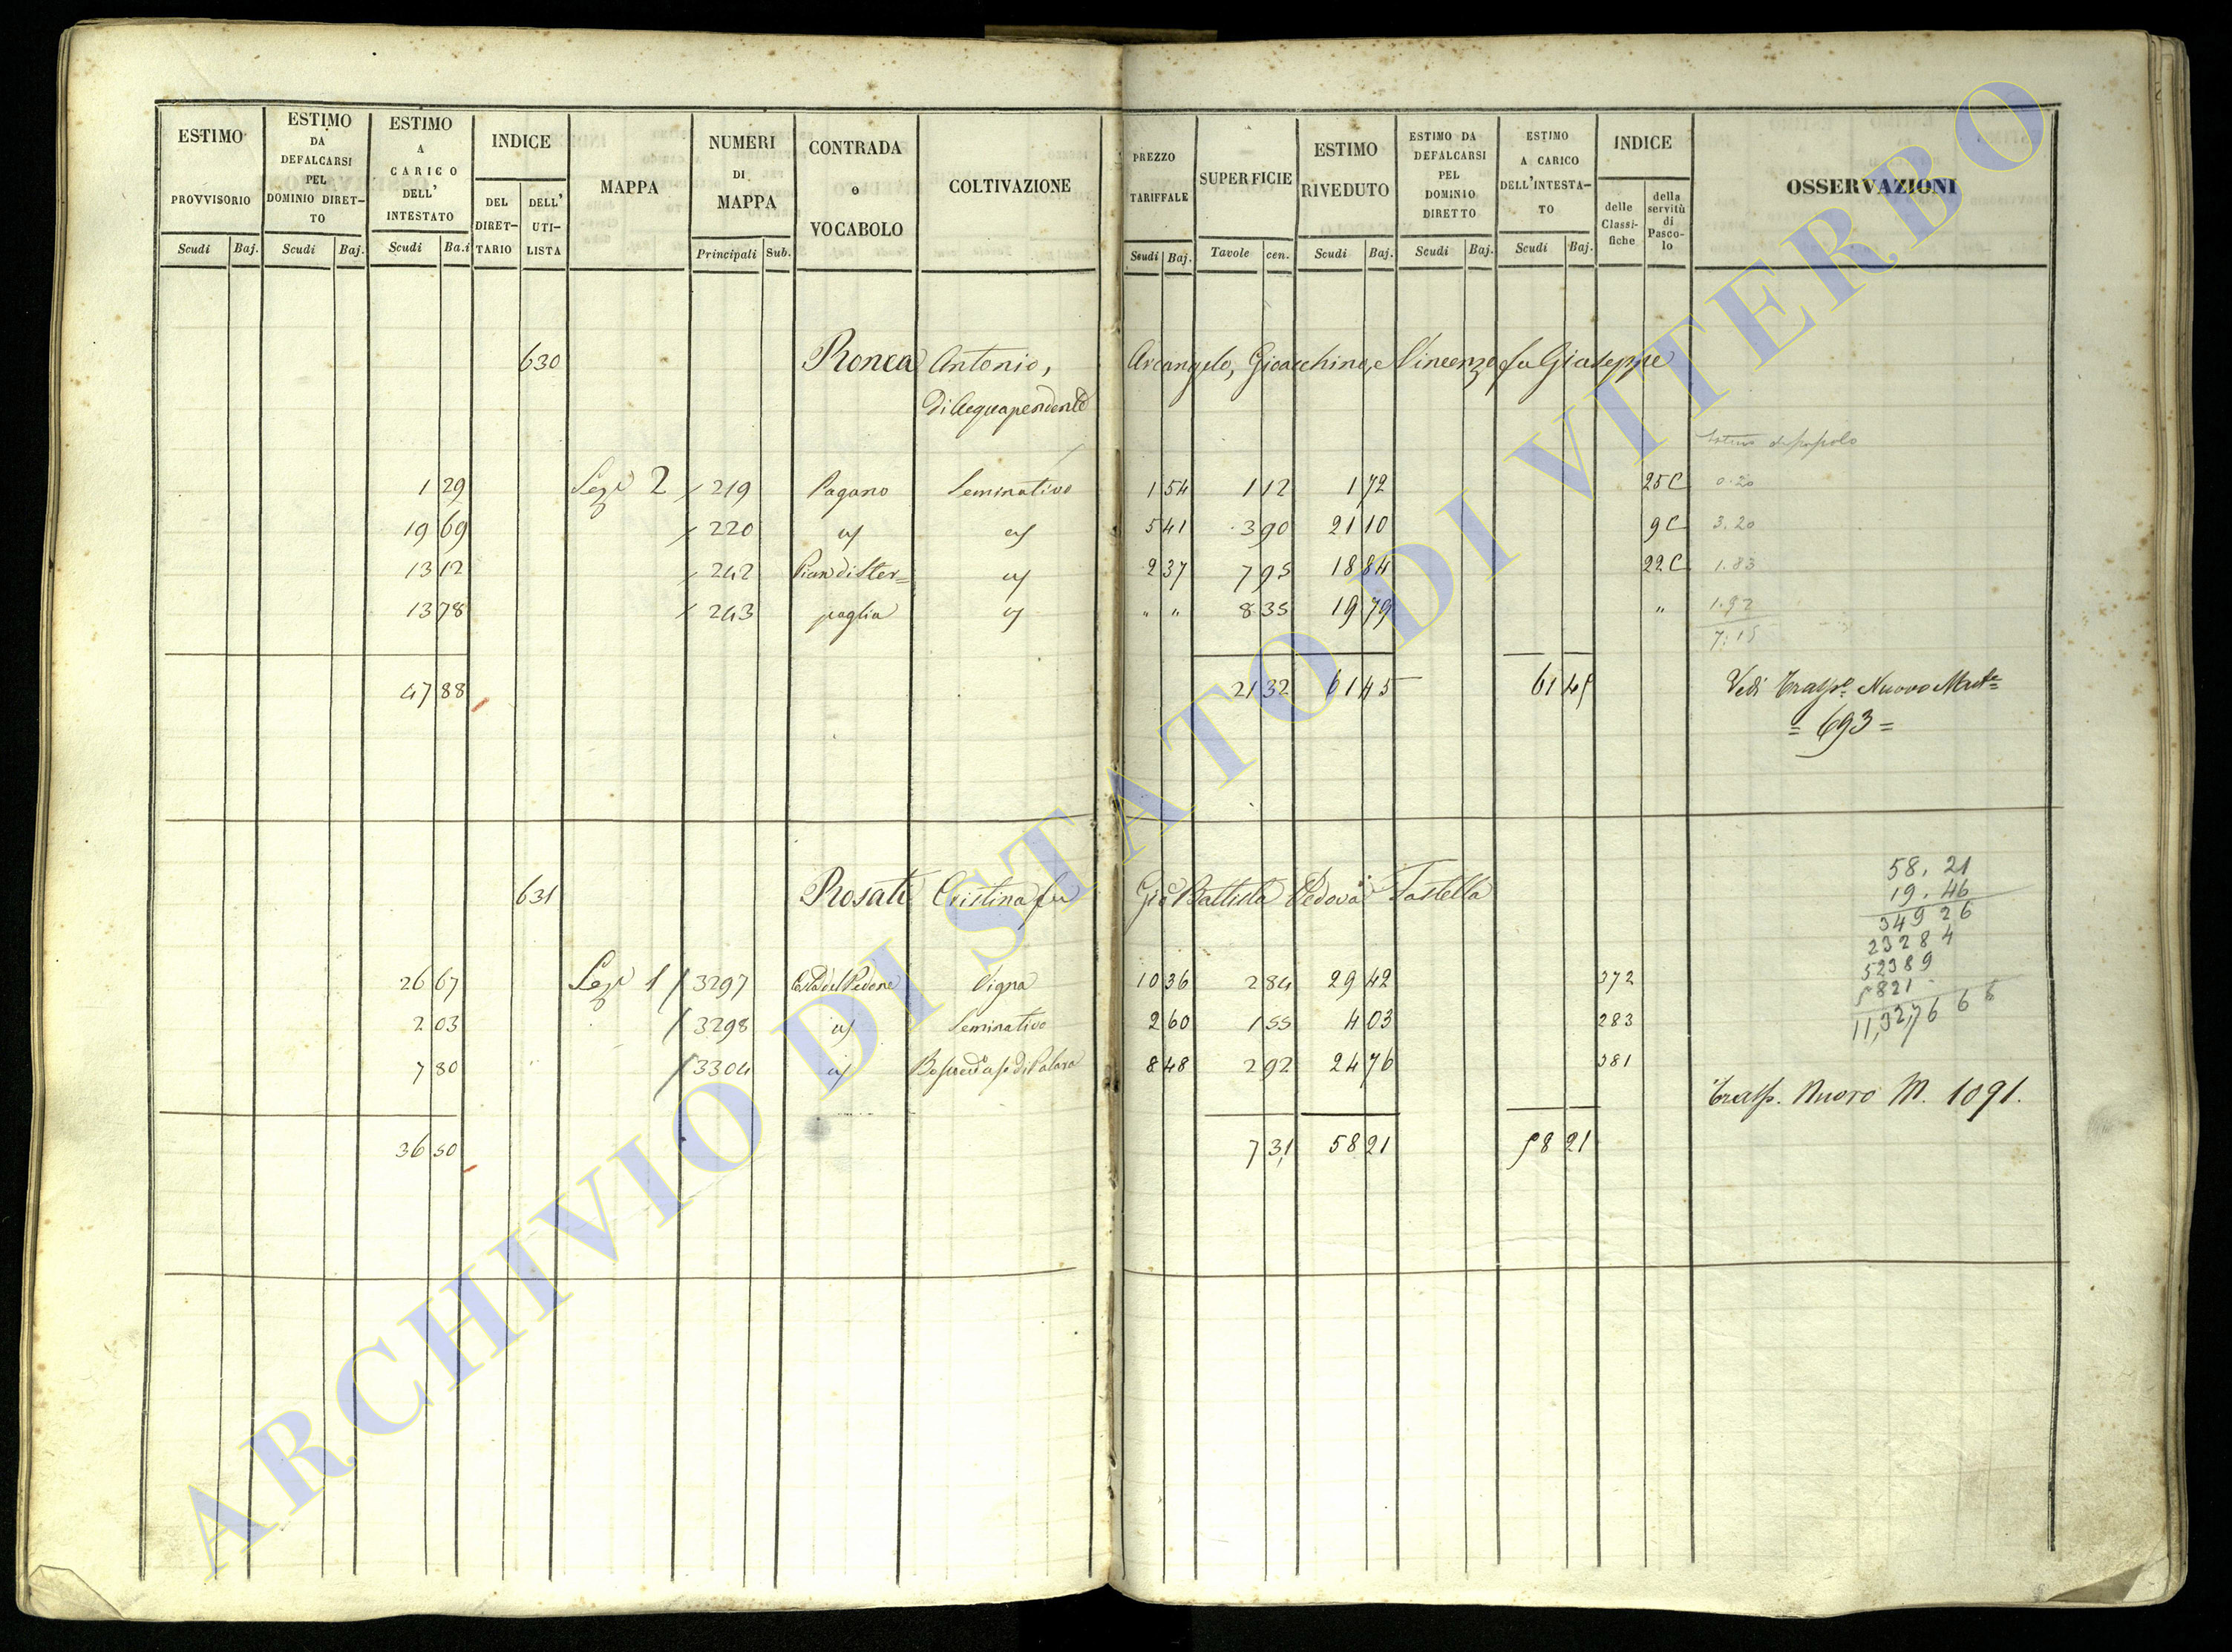 ESTIMO PROVVISORIO Scudi Baj.
ESTIMO DA DEFALCARSI PEL DOMINIO DIRET-TO Scudi Baj.
ESTIMO A CARICO DELL' INTESTATO Scudi Ba.i
INDICE DEL DIRET-TARIO DELL' UTI-LISTA
MAPPA
NUMERI DI MAPPA Principali Sub.
CONTRADA o VOCABOLO
COLTIVAZIONE
PREZZO TARIFFALE Scudi Baj.
SUPERFICIE Tavole cen.
ESTIMO RIVEDUTO Scudi Baj.
ESTIMO DA DEFALCARSI PEL DOMINIO DIRETTO Scudi Baj.
ESTIMO A CARICO DELL'INTESTA-TO Scudi Baj.
INDICE delle Classi-fiche della servitù di Pasco-lo
OSSERVAZIONI
630 Ronca Antonio, Arcangelo, Gioacchino, e Vincenzo fu Giuseppe
di Acquapendente
1 29 Sez. 2 219 Pagano Seminativo 1 54 1 12 1 72 25 C 0.20
19 69 220 " " 5 41 3 90 21 10 9 C 3.20
13 12 242 Pian di Ster= " 2 37 7 95 18 84 22 C 1.83
13 78 243 paglia " " " 8 35 19 79 " 1.92
7.15
47 88 21 32 61 45 61 45 Vedi Trasp. Nuovo Mat.
= 693 =
58. 21
19. 46
631 Rosati Cristina fu Gio Battista Vedova Tastella
34926
23284
52389
5821
11,32,76 6 6
26 67 Sez. 1 3297 Vigna 10 36 2 84 29 42 372
2 03 3298 " Seminativo 2 60 1 55 4 03 283
7 80 3304 " 8 48 2 92 24 76 381
Trasp. Nuovo M. 1091.
36 50 7 31 58 21 58 21
ARCHIVIO DI STATO DI VITERBO